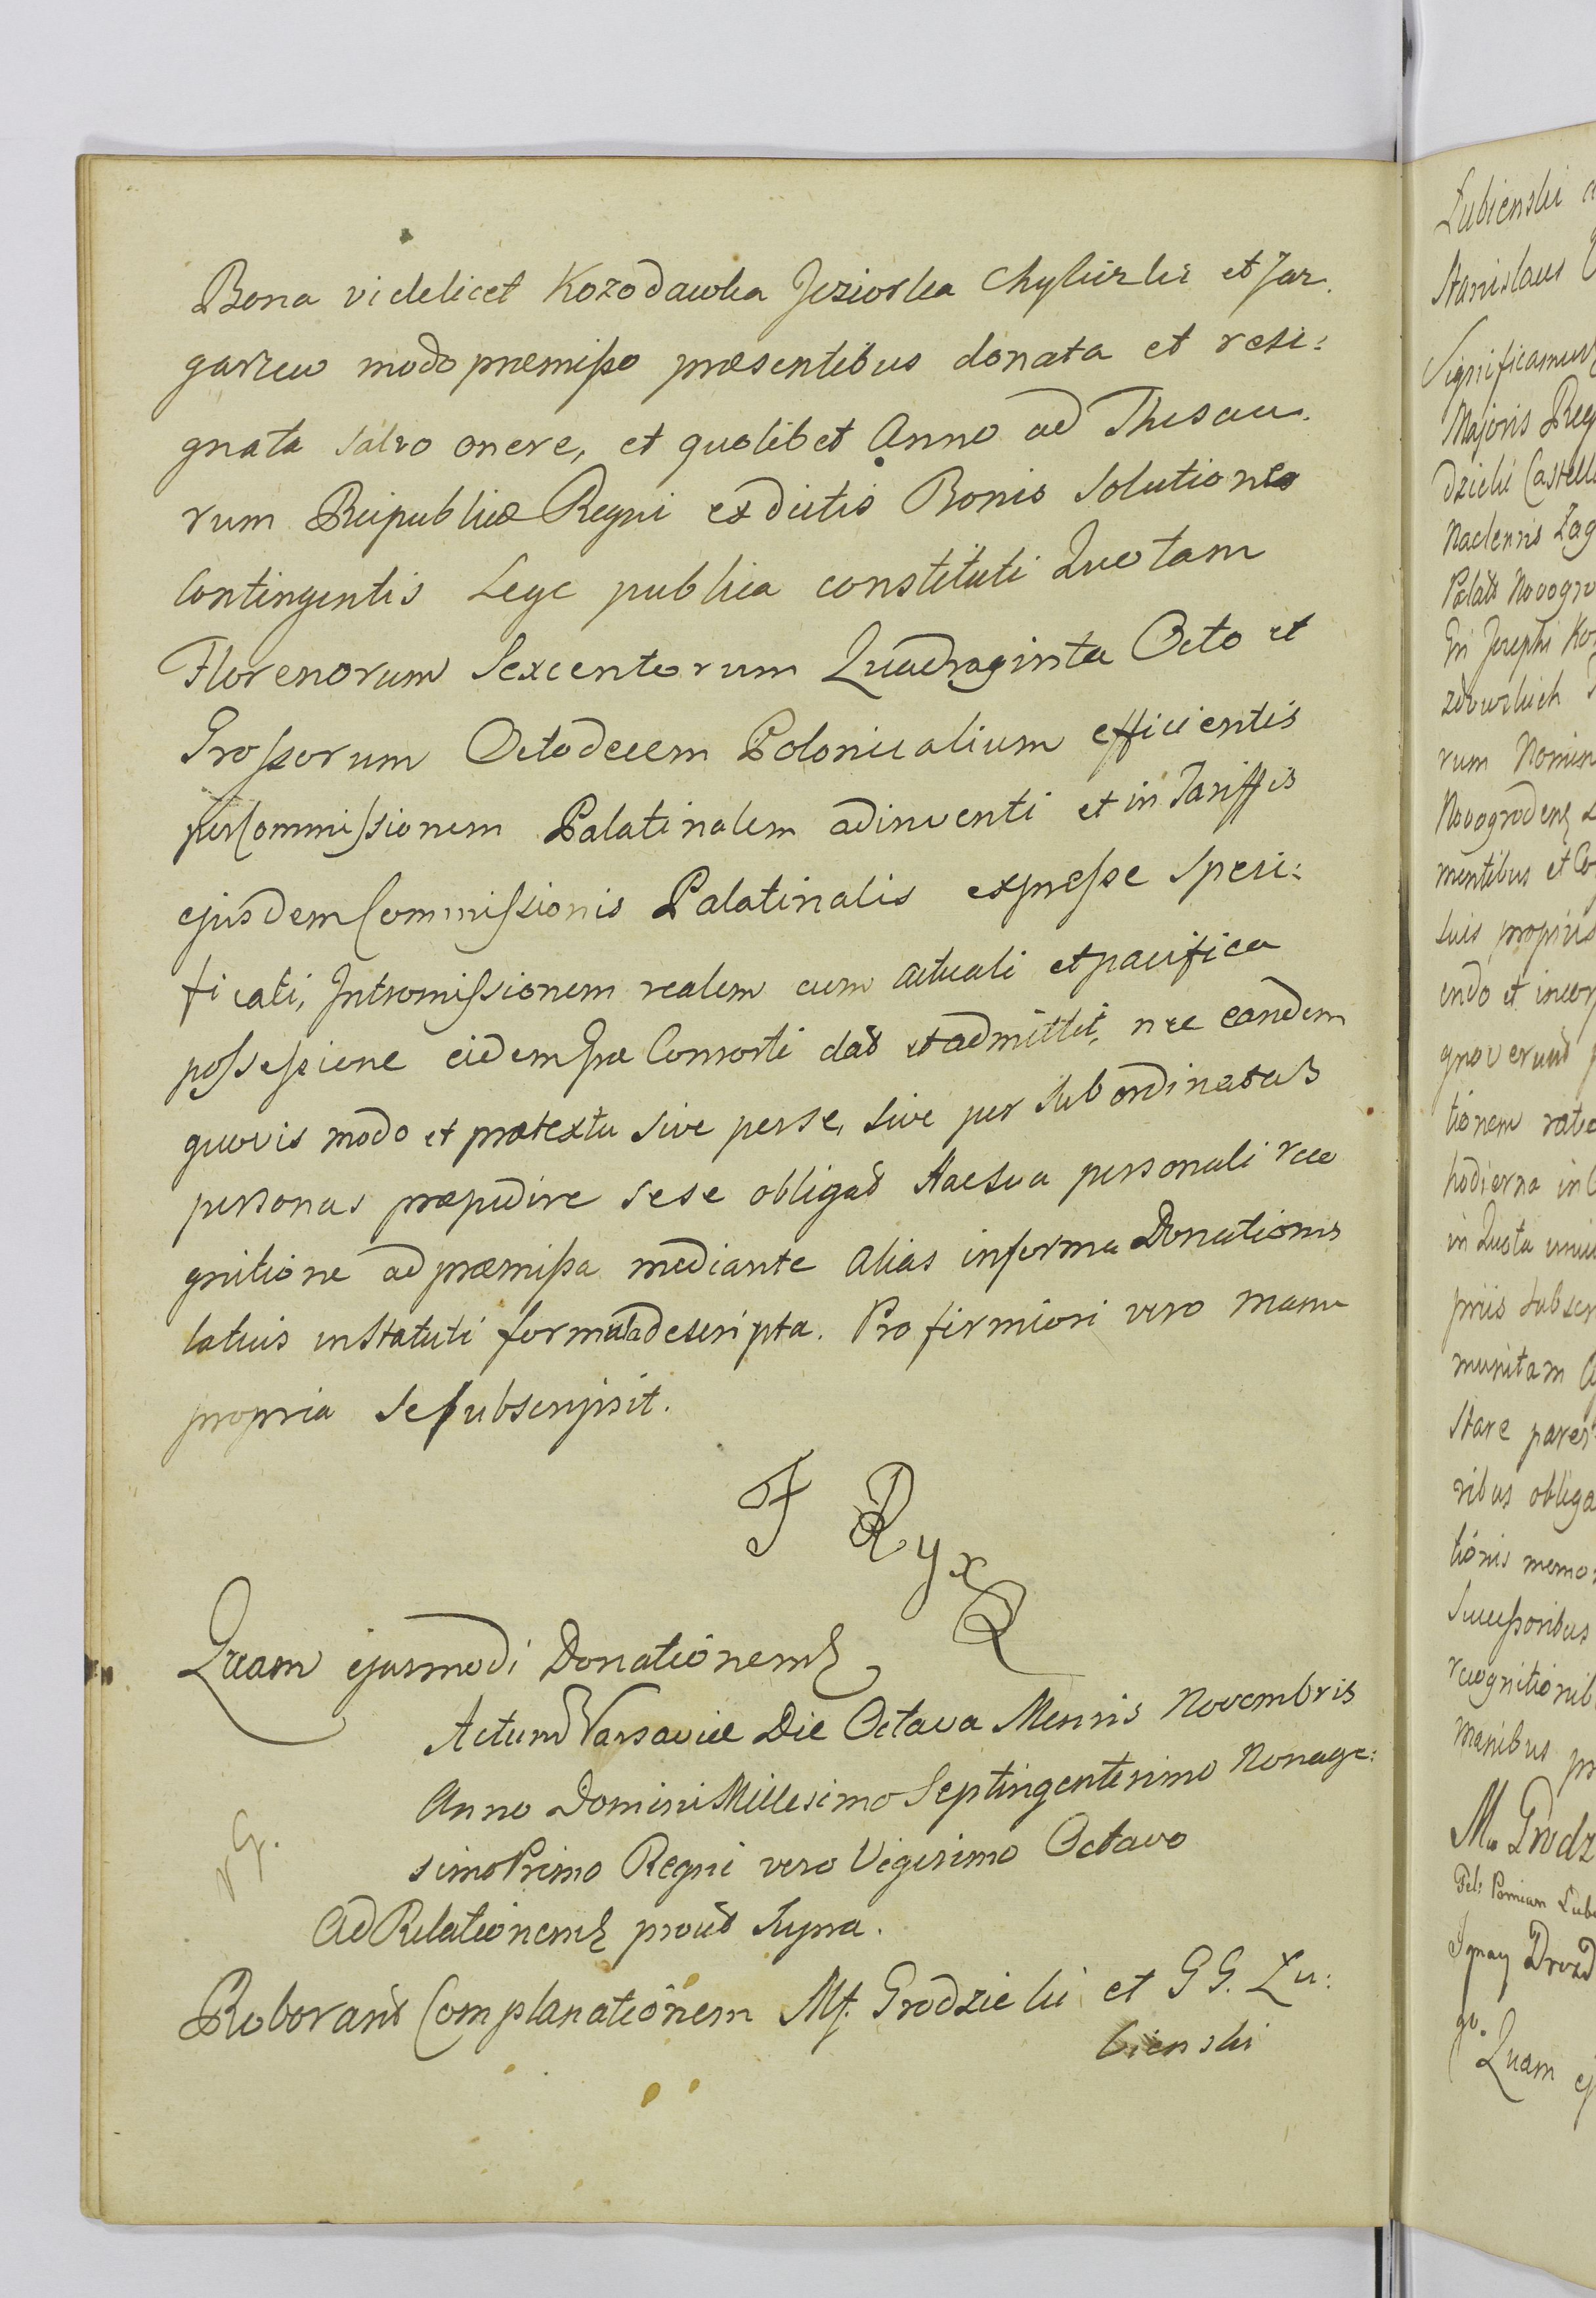 Bona videlicet Kozodawka Jeziorka Chylirki et Jar.
garzew modo præmisso præsentibus donata et resi:
gnata salvo onere, et quolibet Anno ad Thesau.
rum Reipublicæ Regni ex dictis Bonis solutionis
Contingentis Lege publica constituti Quotam
Florenorum Sexcentorum Quadraginta Octo et
Grossorum Octodecem Polonicalium efficientis
per Commissionem Palatinalem adinventi et in Tariffis
ejusdem Commissionis Palatinalis expresse speci:
ficati, Intromissionem realem cum actuali et pacifica
possessione eidem sae Consorti dat et admittit, nec eandem
quovis modo et prætextu sive per se, sive per subordinatas
personas præpedire sese obligat Hac sua personali reco
gnitione ad præmissa mediante Alias in forma Donationis
latius in Statuti formula descripta. Pro firmiori vero manu
propria se subscripsit.
F Ryx
Quam ejusmodi Donationem
Actum Varsaviæ Die Octava Mensis Novembris
Anno Domini Millesimo Septingentesimo Nonage:
simo Primo Regni vero Vigesimo Octavo
Ad Relationem prout supra.
Roborant Complanationem Mf. Grodzicki et GG. Łu:
bienski
Łubienski
Stanislaus
Significamus
Majoris Reg
dzicki Castell
naclensis Zag
Palat Novogro
Gri Josephi Ko
rum Nomin
mentibus et Co
suis propriis
endo et incor
gnoverunt
tionem rat
hodierna in
in Quota
priis subscr
munitam
stare parer
ribus obliga
tionis memo
Successoribus
recognitionib
manibus pr
M. Grodz
Ignacy Drozd
Quam ej